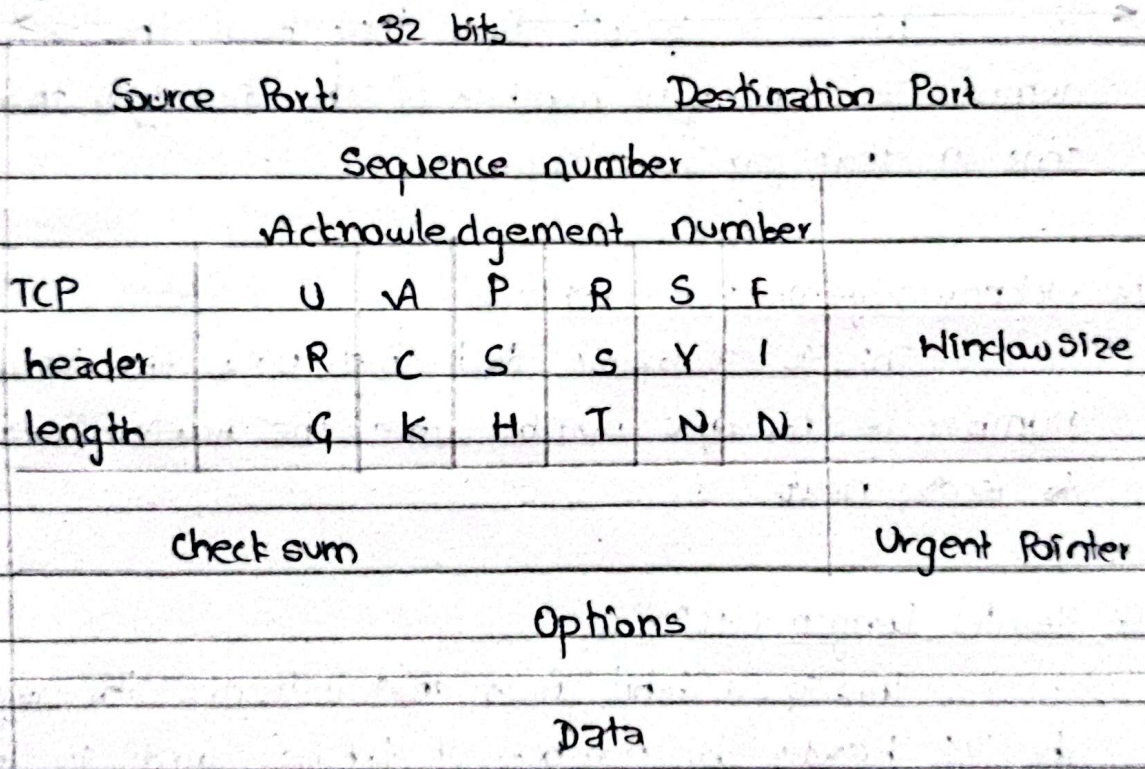 32 bits
Source Port Destination Port
Sequence number
Acknowledgement number
TCP U A P R S F
header R C S S Y I Window size
length G K H T N N
check sum Urgent Pointer
Options
Data